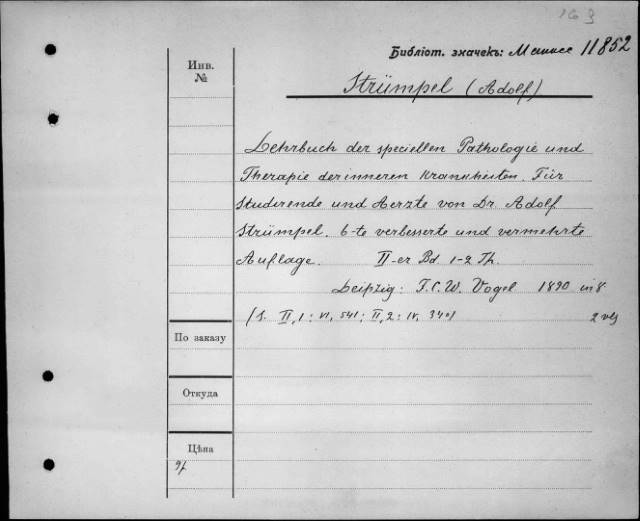 163
Библіот. значекъ: 11852
Инв.
№
Strümpel (Adolf)
Lehrbuch der speciellen Pathologie und
Therapie der inneren Krankheiten. Für
Studirende und Aerzte von Dr. Adolf
Strümpel. 6-te verbesserte und vermehrte
Auflage. II-er Bd. 1-2 Th.
Leipzig: F.C.W. Vogel 1890 in 8.
II,1: VI, 541; II,2: IV, 340)
По заказу
Откуда
Цѣна